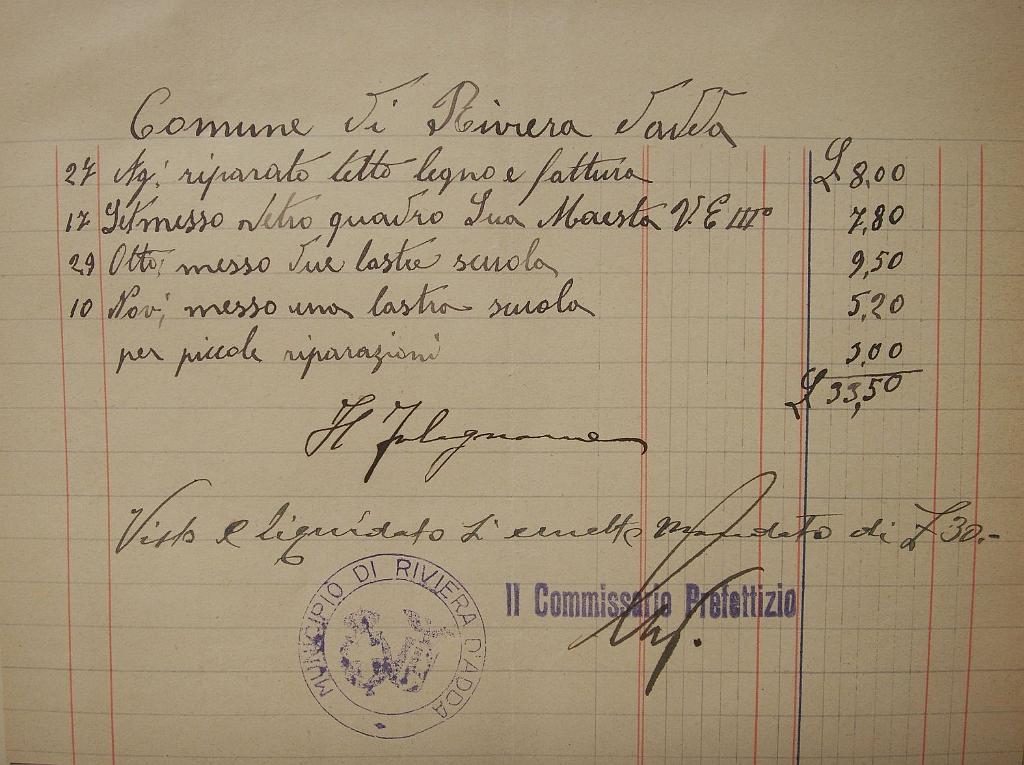 Comune di Riviera d'adda
27 Ag. riparato tetto legno e fattura £ 8,00
17 Set messo vetro quadro Sua Maestà V. E III° 7,80
29 Otto, messo due lastre scuola 9,50
10 Nov, messo una lastra scuola 5,20
per piccole riparazioni 3,00
£ 33,50
Il Falegname
Visto e liquidato si emette mandato di £ 30.-
Il Commissario Prefettizio
MUNICIPIO DI RIVIERA D'ADDA